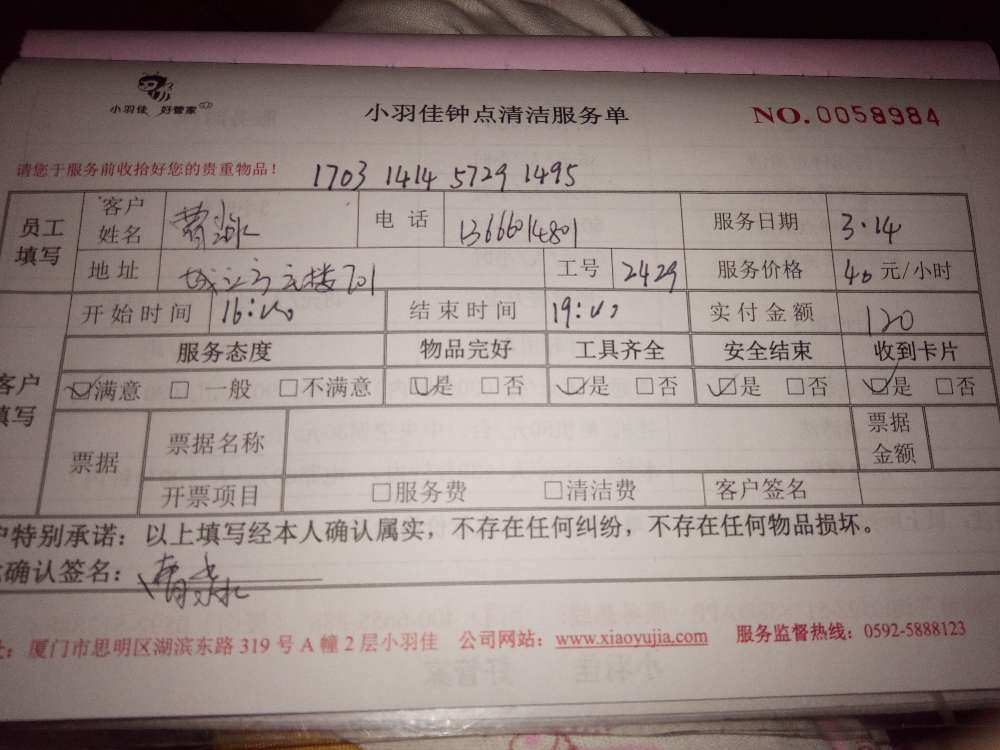 小羽佳 好管家
小羽佳钟点清洁服务单
NO.0058984
请您于服务前收拾好您的贵重物品！
1703 1414 5729 1495
员工填写 客户姓名 曹 电话 13666014801 服务日期 3.14
地址 701 工号 2429 服务价格 40 元/小时
开始时间 16:00 结束时间 19:00 实付金额 120
客户填写 服务态度 物品完好 工具齐全 安全结束 收到卡片
☑满意 □一般 □不满意 ☑是 □否 ☑是 □否 ☑是 □否 ☑是 □否
票据 票据名称 票据金额
开票项目 □服务费 □清洁费 客户签名
户特别承诺：以上填写经本人确认属实，不存在任何纠纷，不存在任何物品损坏。
确认签名：曹
址：厦门市思明区湖滨东路 319 号 A 幢 2 层小羽佳 公司网站：www.xiaoyujia.com 服务监督热线：0592-5888123